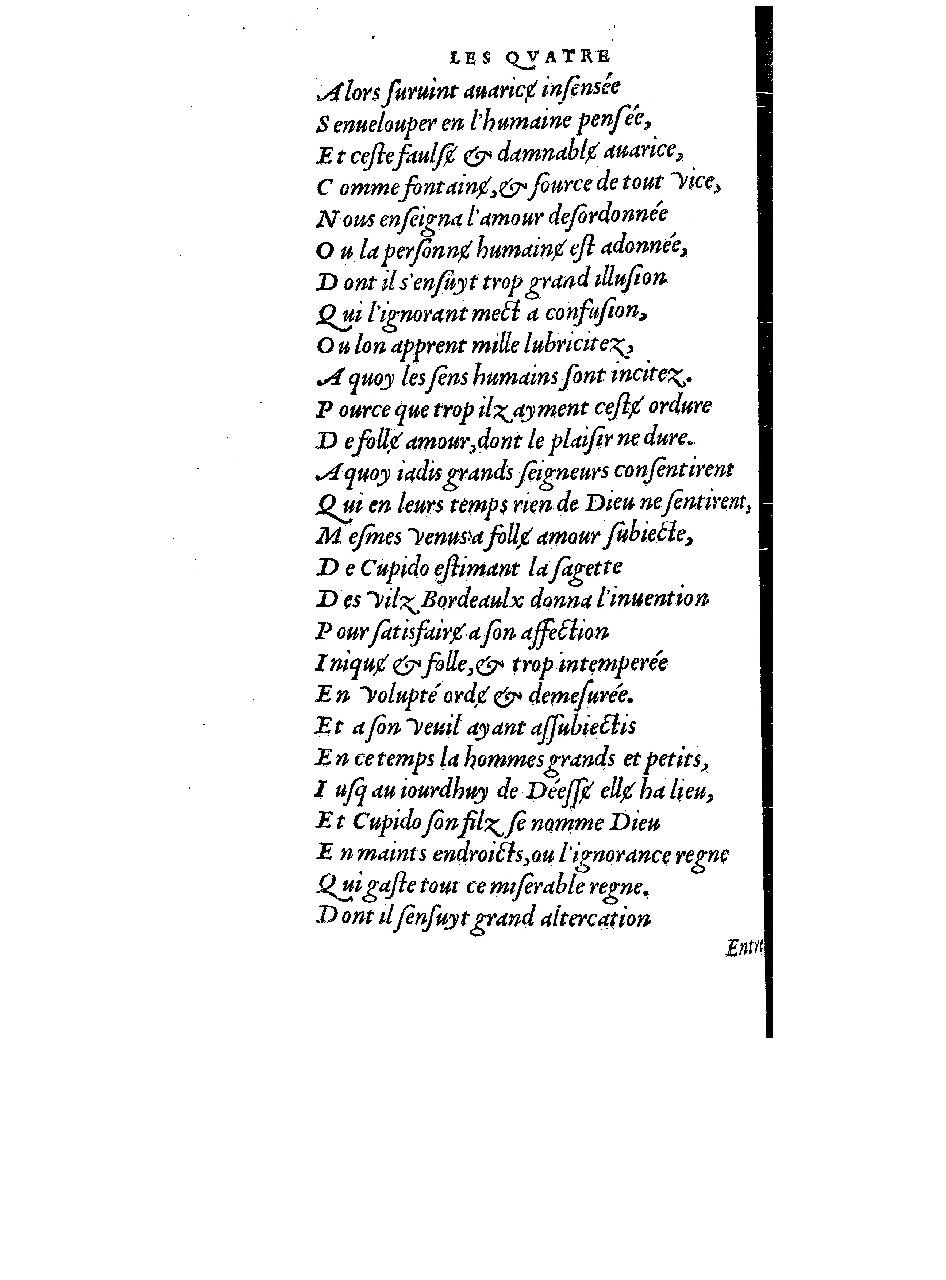 LES QVATRE
Alors ſuruint auaricɇ inſenſée
Senuelouper en l'humaine penſée,
Et ceſte faulſɇ & damnablɇ auarice,
Comme fontainɇ, & ſource de tout vice,
Nous enſeigna l'amour deſordonnée
Ou la perſonnɇ humainɇ eſt adonnée,
Dont il s'enſuyt trop grand illuſion
Qui l'ignorant mect a confuſion,
Ou lon apprent mille lubricitez,
A quoy les ſens humains ſont incitez.
Pource que trop ilz ayment ceſtɇ ordure
De follɇ amour, dont le plaiſir ne dure.
A quoy iadis grands ſeigneurs conſentirent
Qui en leurs temps rien de Dieu ne ſentirent,
Meſmes Venus a follɇ amour ſubiecte,
De Cupido eſtimant la ſagette
Des vilz Bordeaulx donna l'inuention
Pour ſatisfairɇ a ſon affection
Iniquɇ & folle, & trop intemperée
En volupté ordɇ & demeſurée.
Et a ſon veuil ayant aſſubiectis
En ce temps la hommes grands et petits,
Iuſqu au iourdhuy de Déeſſɇ ellɇ ha lieu,
Et Cupido ſon filz ſe nomme Dieu
En maints endroicts, ou l'ignorance regne
Qui gaſte tout ce miſerable regne.
Dont il ſenſuyt grand altercation
Entr